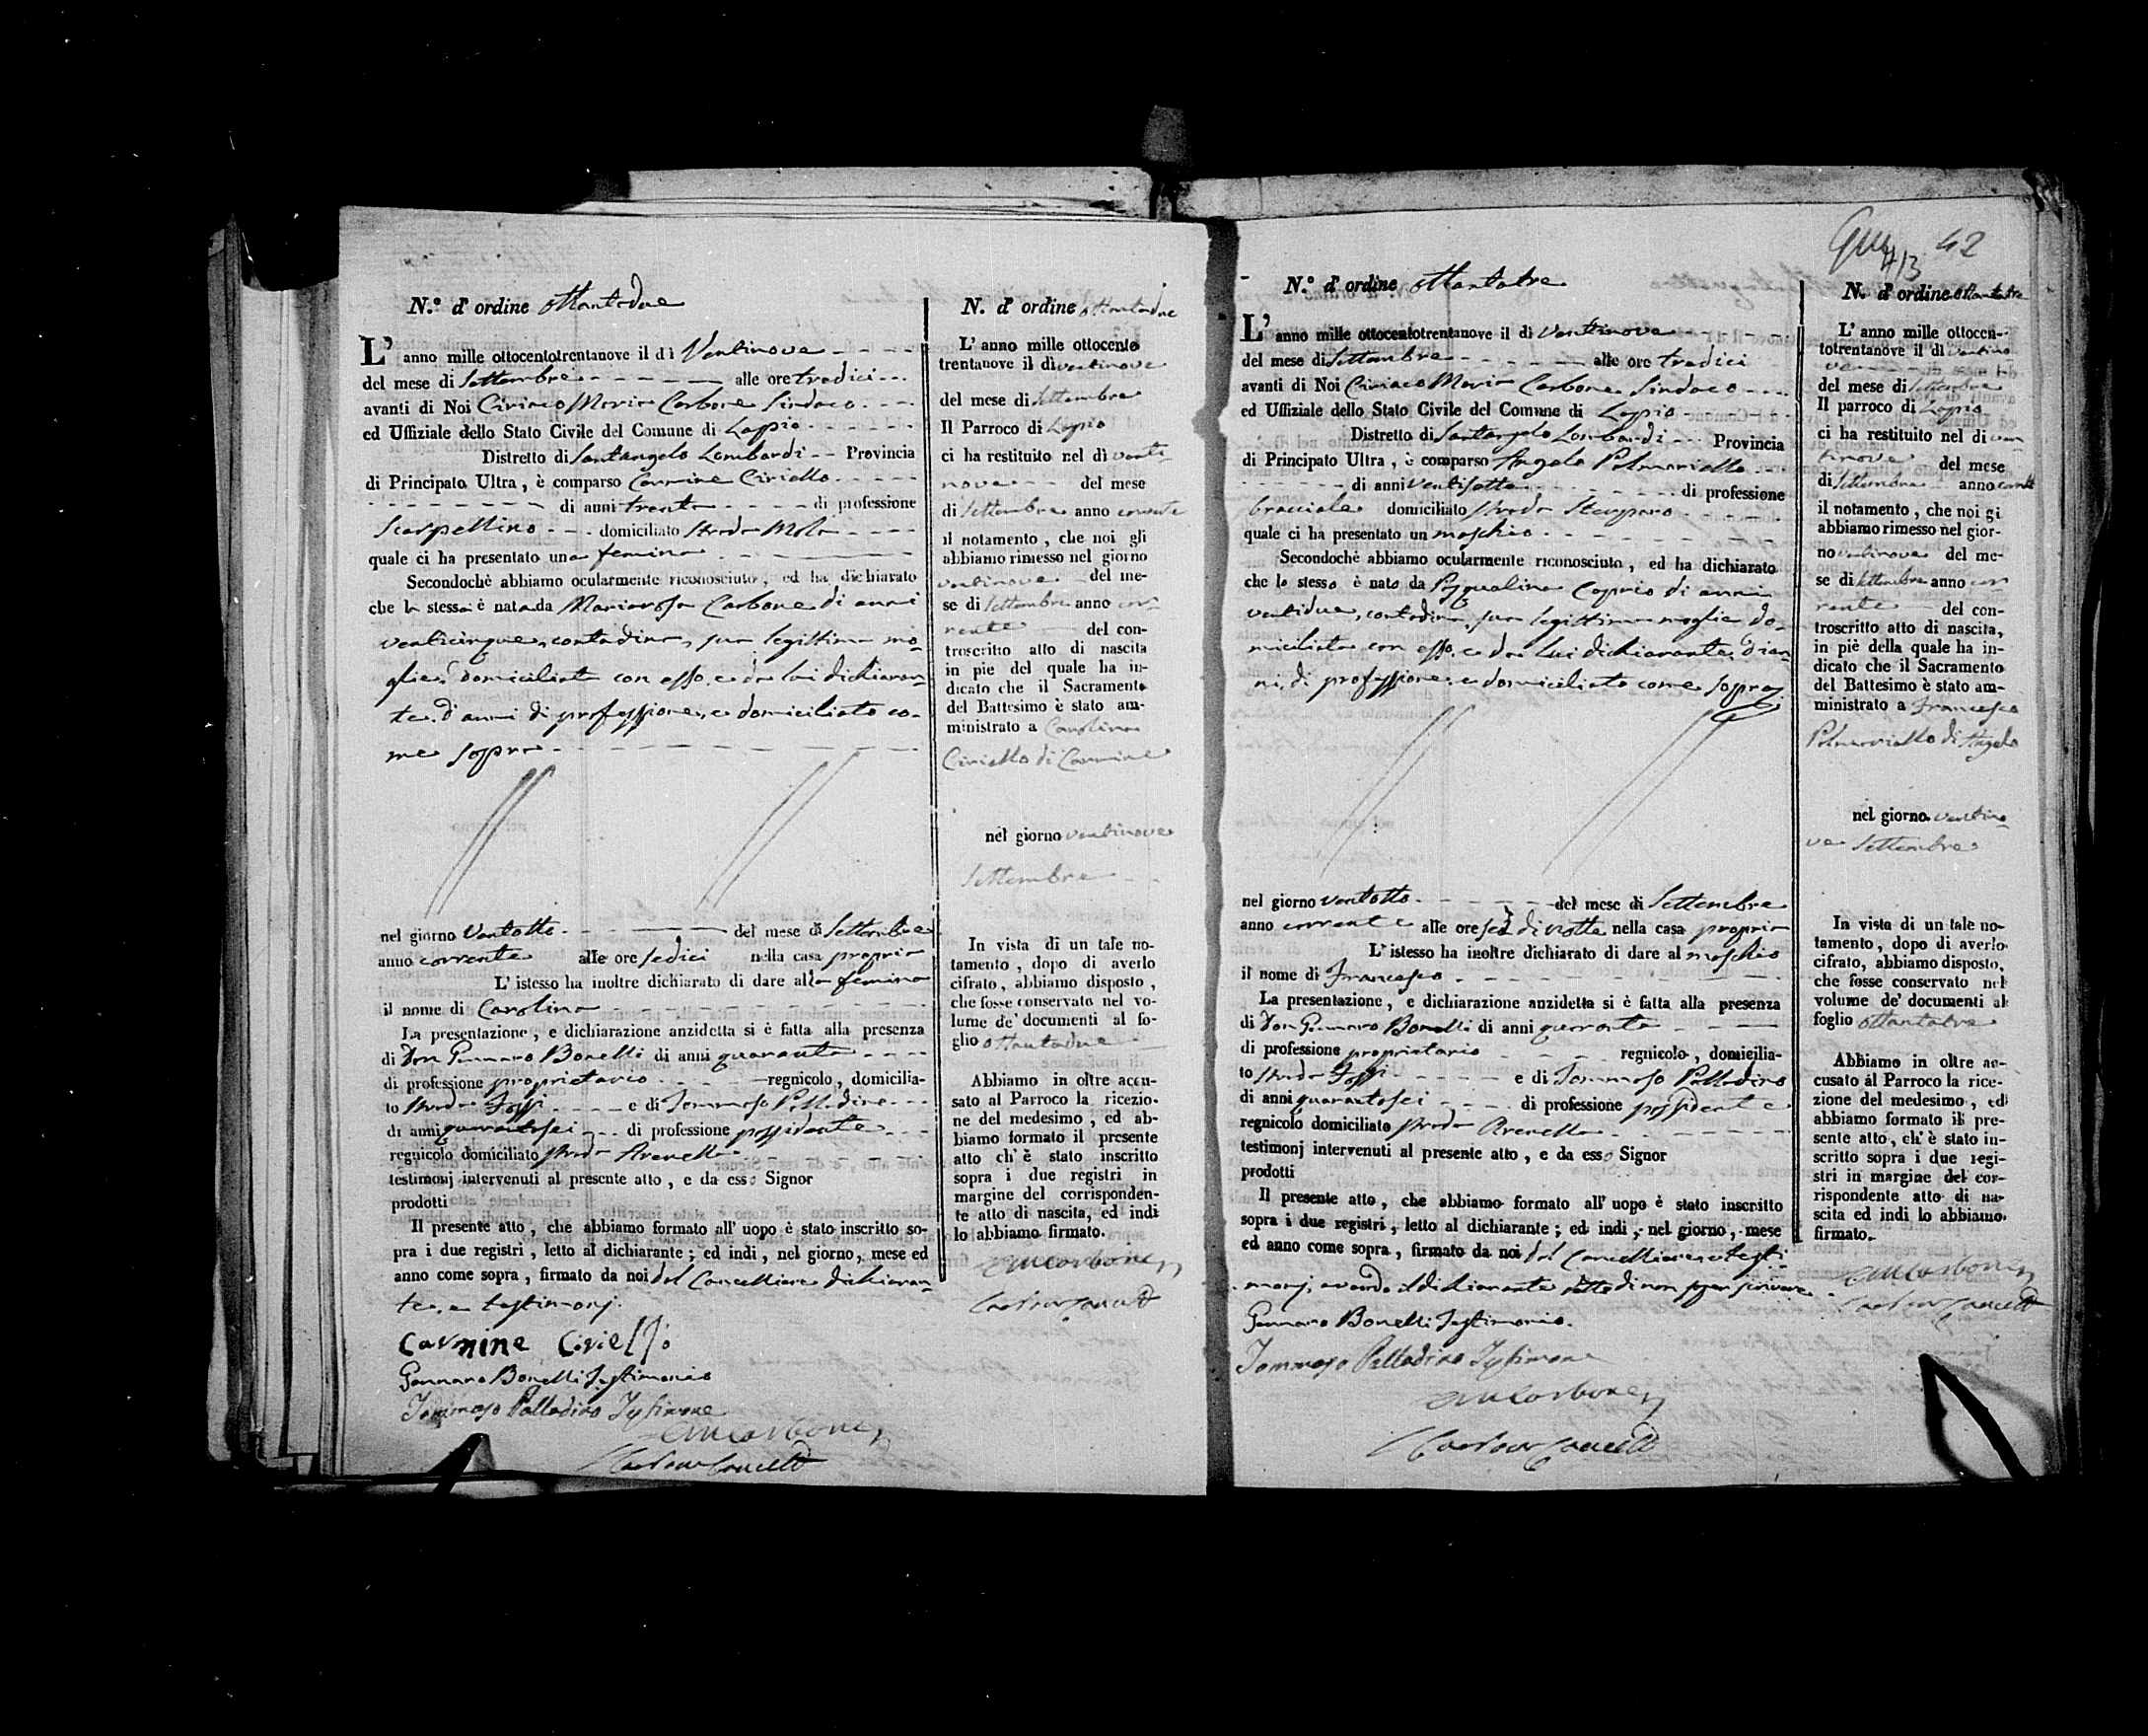 N.º d'ordine ottantadue
L' anno mille ottocentotrentanove il dì Ventinove
del mese di Settembre alle ore tredici
avanti di Noi Ciriaco Maria Carbone Sindaco
ed Uffiziale dello Stato Civile del Comune di Lapio
Distretto di Santangelo Lombardi Provincia
di Principato Ultra, è comparso Carmine Ciriello
di anni trenta di professione
Scarpellino domiciliato Strada Mola
quale ci ha presentato una femina
Secondochè abbiamo ocularmente riconosciuto, ed ha dichiarato
che la stessa è nata da Mariarosa Carbone di anni
venticinque, contadina, sua legittima mo-
glie, domiciliata con esso, e da lui dichiaran-
te, d'anni di professione, e domiciliato co-
me sopra
nel giorno Ventotto del mese di Settembre
anno corrente alle ore sedici nella casa propria
L' istesso ha inoltre dichiarato di dare alla femina
il nome di Carolina
La presentazione, e dichiarazione anzidetta si è fatta alla presenza
di Don Gennaro Bonelli di anni quaranta
di professione proprietario regnicolo, domicilia-
to Strada Fossi e di Tommaso Palladino
di anni quarantasei di professione possidente
regnicolo domiciliato strada Arenella
testimonj intervenuti al presente atto, e da esso Signor
prodotti
Il presente atto, che abbiamo formato all' uopo è stato inscritto so-
pra i due registri, letto al dichiarante; ed indi, nel giorno, mese ed
anno come sopra, firmato da noi dal Cancelliere dichiaran-
te, e testimonj.
Carmine Ciriello
Gennaro Bonelli Testimonio
Tommaso Palladino Testimone
CMCarbone
N. d' ordine ottantadue
L' anno mille ottocento
trentanove il dì ventinove
del mese di Settembre
Il Parroco di Lapio
ci ha restituito nel dì venti-
nove del mese
di Settembre anno corrente
il notamento, che noi gli
abbiamo rimesso nel giorno
ventinove del me-
se di Settembre anno cor-
rente del con-
troscritto atto di nascita
in piè del quale ha in-
dicato che il Sacramento
del Battesimo è stato am-
ministrato a Carolina
Ciriello di Carmine
nel giorno ventinove
Settembre
In vista di un tale no-
tamento, dopo di averlo
cifrato, abbiamo disposto,
che fosse conservato nel vo-
lume de' documenti al fo-
glio ottantadue
Abbiamo in oltre accu-
sato al Parroco la ricezio-
ne del medesimo, ed ab-
biamo formato il presente
atto ch' è stato inscritto
sopra i due registri in
margine del corrisponden-
te atto di nascita, ed indi
lo abbiamo firmato.
CMCarbone
42
N.º d' ordine ottantatre
L' anno mille ottocentotrentanove il dì Ventinove
del mese di Settembre alle ore tredici
avanti di Noi Ciriaco Maria Carbone Sindaco
ed Uffiziale dello Stato Civile del Comune di Lapio
Distretto di Santangelo Lombardi Provincia
di Principato Ultra, è comparso Angelo Palmariello
di anni ventisette di professione
bracciale domiciliato strada
quale ci ha presentato un maschio
Secondochè abbiamo ocularmente riconosciuto, ed ha dichiarato
che lo stesso è nato da Pasqualina Caprio di anni
ventidue, contadina, sua legittima moglie do-
miciliata con esso, e da lui dichiarante, d'an-
ni, di professione, e domiciliato come sopra
nel giorno ventotto del mese di Settembre
anno corrente alle ore sei di notte nella casa propria
L' istesso ha inoltre dichiarato di dare al maschio
il nome di Francesco
La presentazione, e dichiarazione anzidetta si è fatta alla presenza
di Don Gennaro Bonelli di anni quaranta
di professione proprietario regnicolo, domicilia-
to Strada Fossi e di Tommaso Palladino
di anni quarantasei di professione possidente
regnicolo domiciliato strada Arenella
testimonj intervenuti al presente atto, e da esso Signor
prodotti
Il presente atto, che abbiamo formato all' uopo è stato inscritto
sopra i due registri, letto al dichiarante; ed indi, nel giorno, mese
ed anno come sopra, firmato da noi dal Cancelliere e testi-
monj, avendo il dichiarante detto di non saper scrivere.
Gennaro Bonelli Testimonio.
Tommaso Palladino Testimone
CMCarbone
N. d' ordine ottantatre
L' anno mille ottocen-
totrentanove il dì ventino-
ve
del mese di Settembre
Il parroco di Lapio
ci ha restituito nel dì ven-
tinove del mese
di Settembre anno corrente
il notamento, che noi gi
abbiamo rimesso nel gior-
no ventinove del me-
se di Settembre anno cor-
rente del con-
troscritto atto di nascita,
in piè della quale ha in-
dicato che il Sacramento
del Battesimo è stato am-
ministrato a Francesco
Palmariello di Angelo
nel giorno ventino-
ve Settembre
In vista di un tale no-
tamento, dopo di averlo
cifrato, abbiamo disposto,
che fosse conservato nel
volume de' documenti al
foglio ottantatre
Abbiamo in oltre ac-
cusato al Parroco la rice-
zione del medesimo, ed
abbiamo formato il pre-
sente atto, ch' è stato in-
scritto sopra i due regi-
stri in margine del cor-
rispondente atto di na-
scita ed indi lo abbiamo
firmato.
CMCarbone